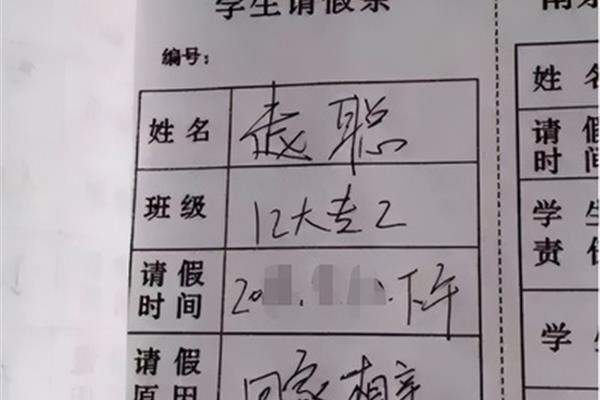 学生请假条
编号：
姓名 聪
班级 12大专2
请假时间 20 下午
请假原因 回家相亲
南
姓名
请假
时间
学生
责任
学